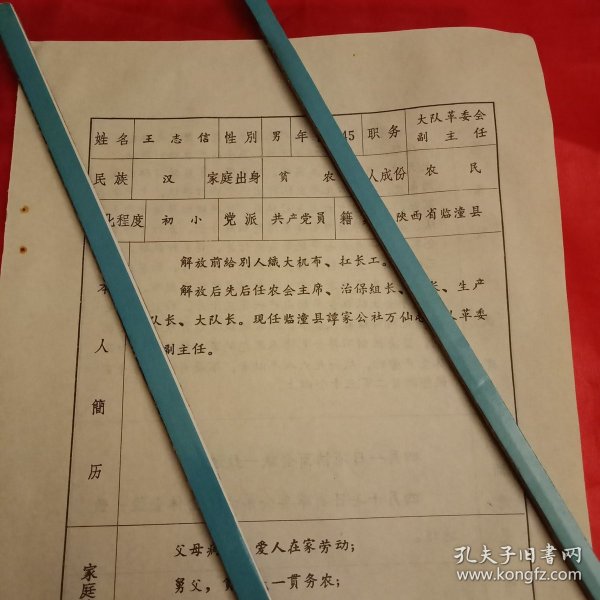 姓名 王志信 性别 男 年 45 职务 大队革委会副主任
民族 汉 家庭出身 贫农 人成份 农民
化程度 初小 党派 共产党员 籍 陕西省临潼县
本人简历
解放前给别人织大机布、扛长工。
解放后先后任农会主席、治保组长、 长、生产
队长、大队长。现任临潼县谭家公社万仙 队革委
副主任。
家庭
父母 爱人在家劳动；
舅父， 一贯务农；
孔夫子旧书网
www.kongfz.com